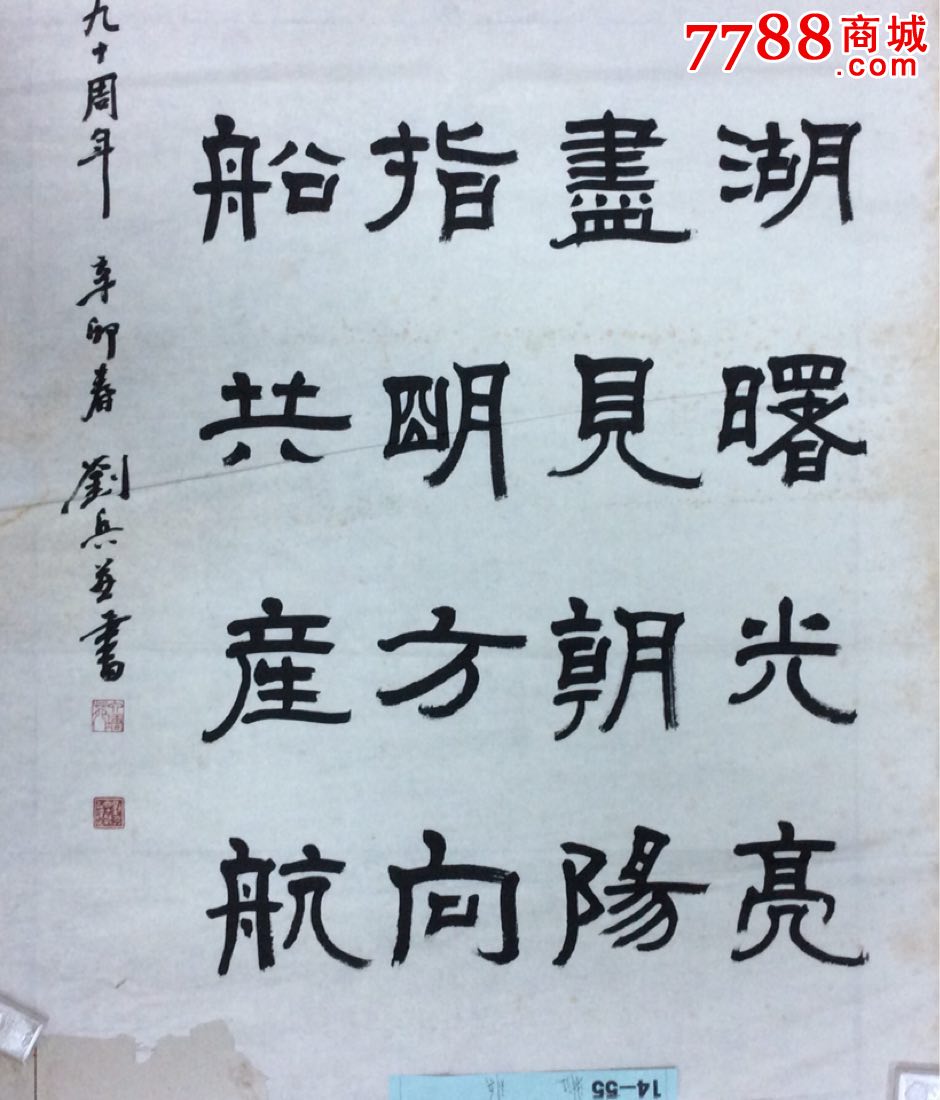 湖曙光亮
盡見朝陽
指明方向
船共產航
九十周年 辛卯春 劉兵並書
7788商城
.com
14-55